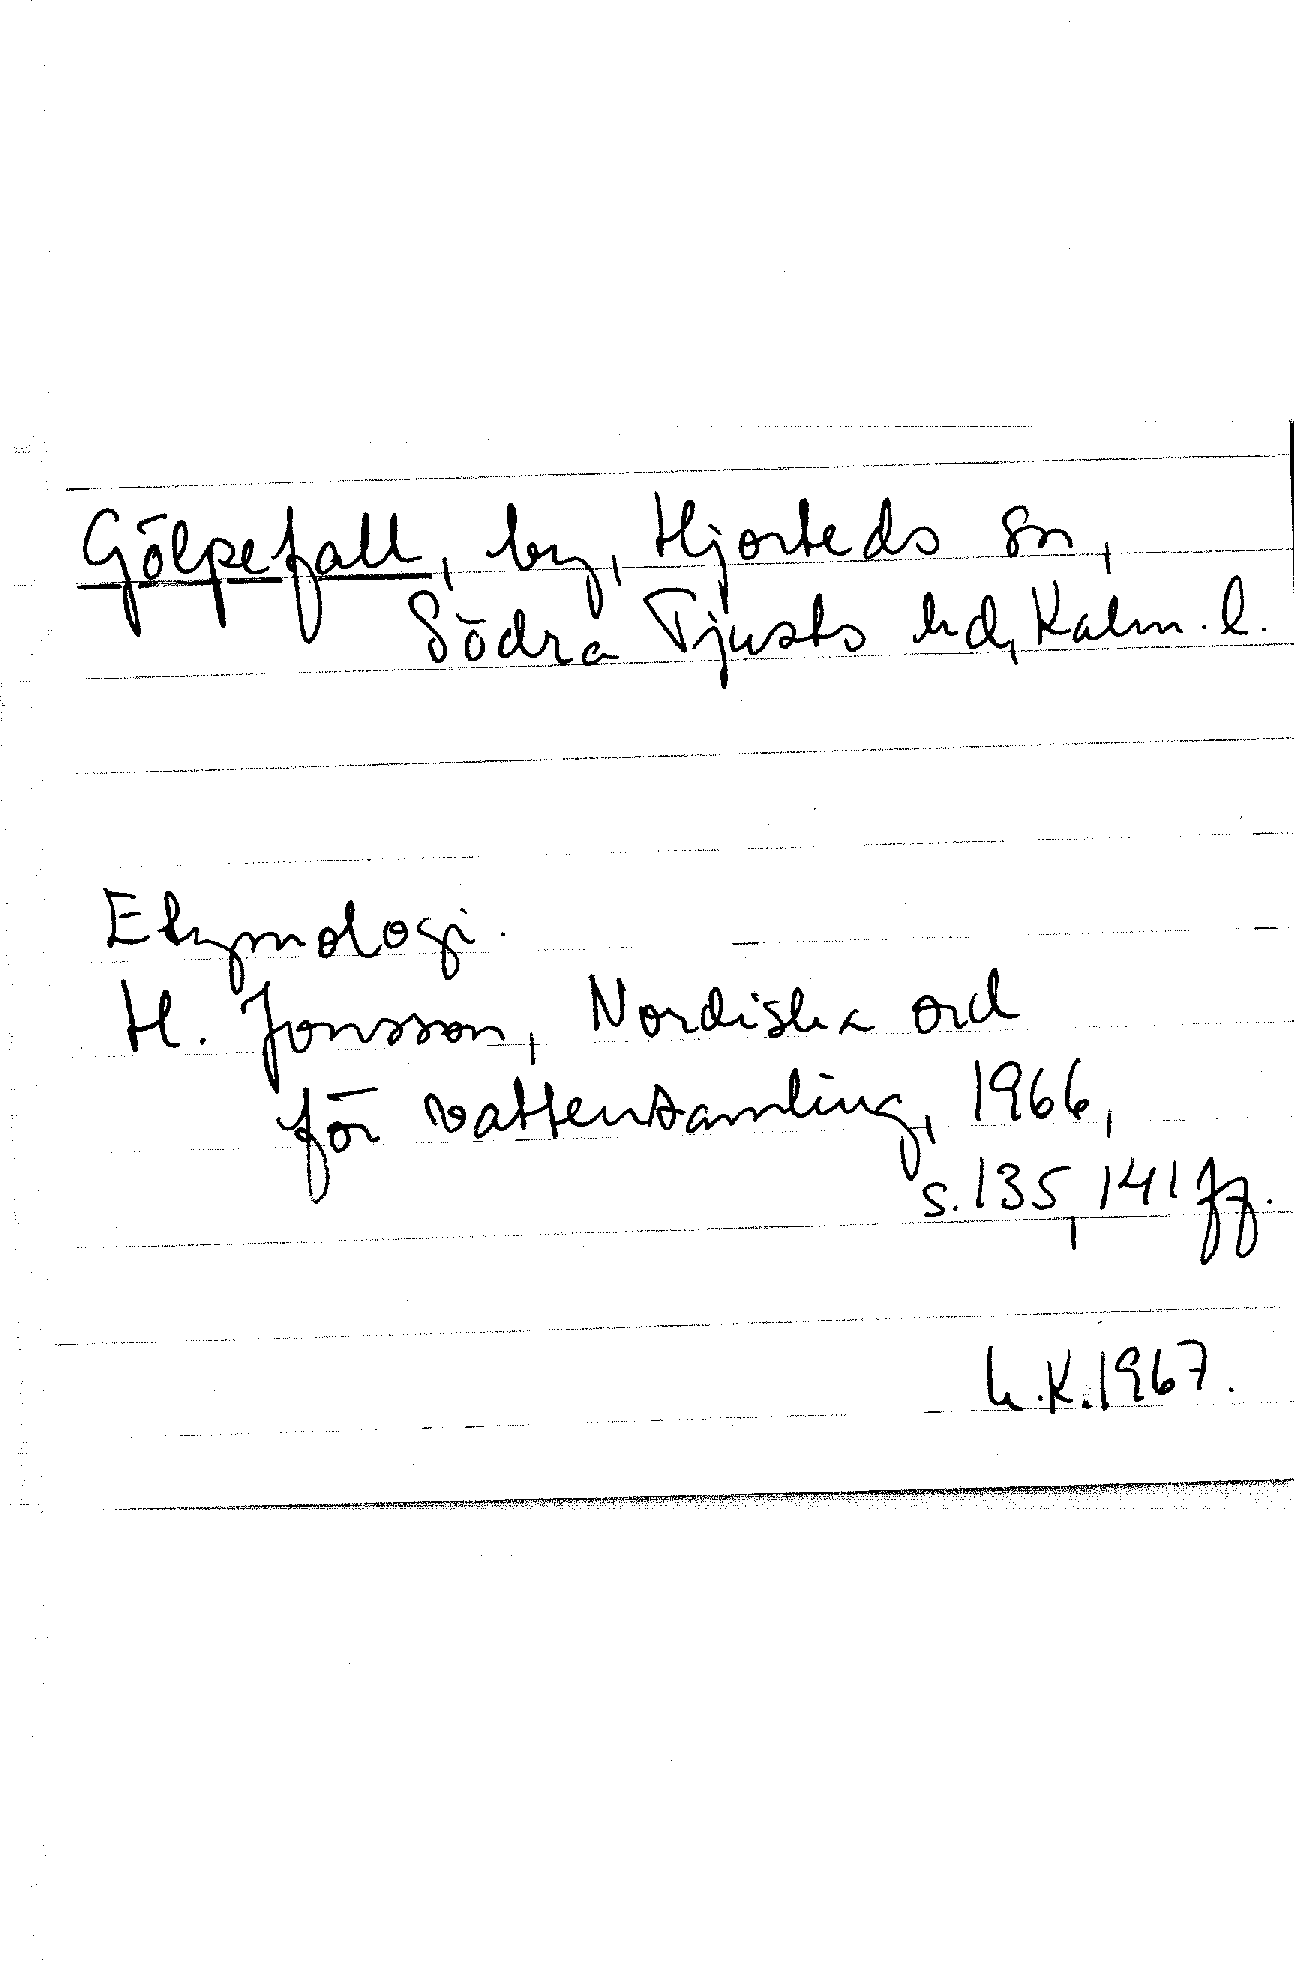 Gölpefall, by, Hjorteds sn,
Södra Tjusts hd, Kalm. l.
Etymologi.
H. Jonsson, Nordiska ord
för vattensamling, 1966,
s. 135, 141 ff.
K. 1967.